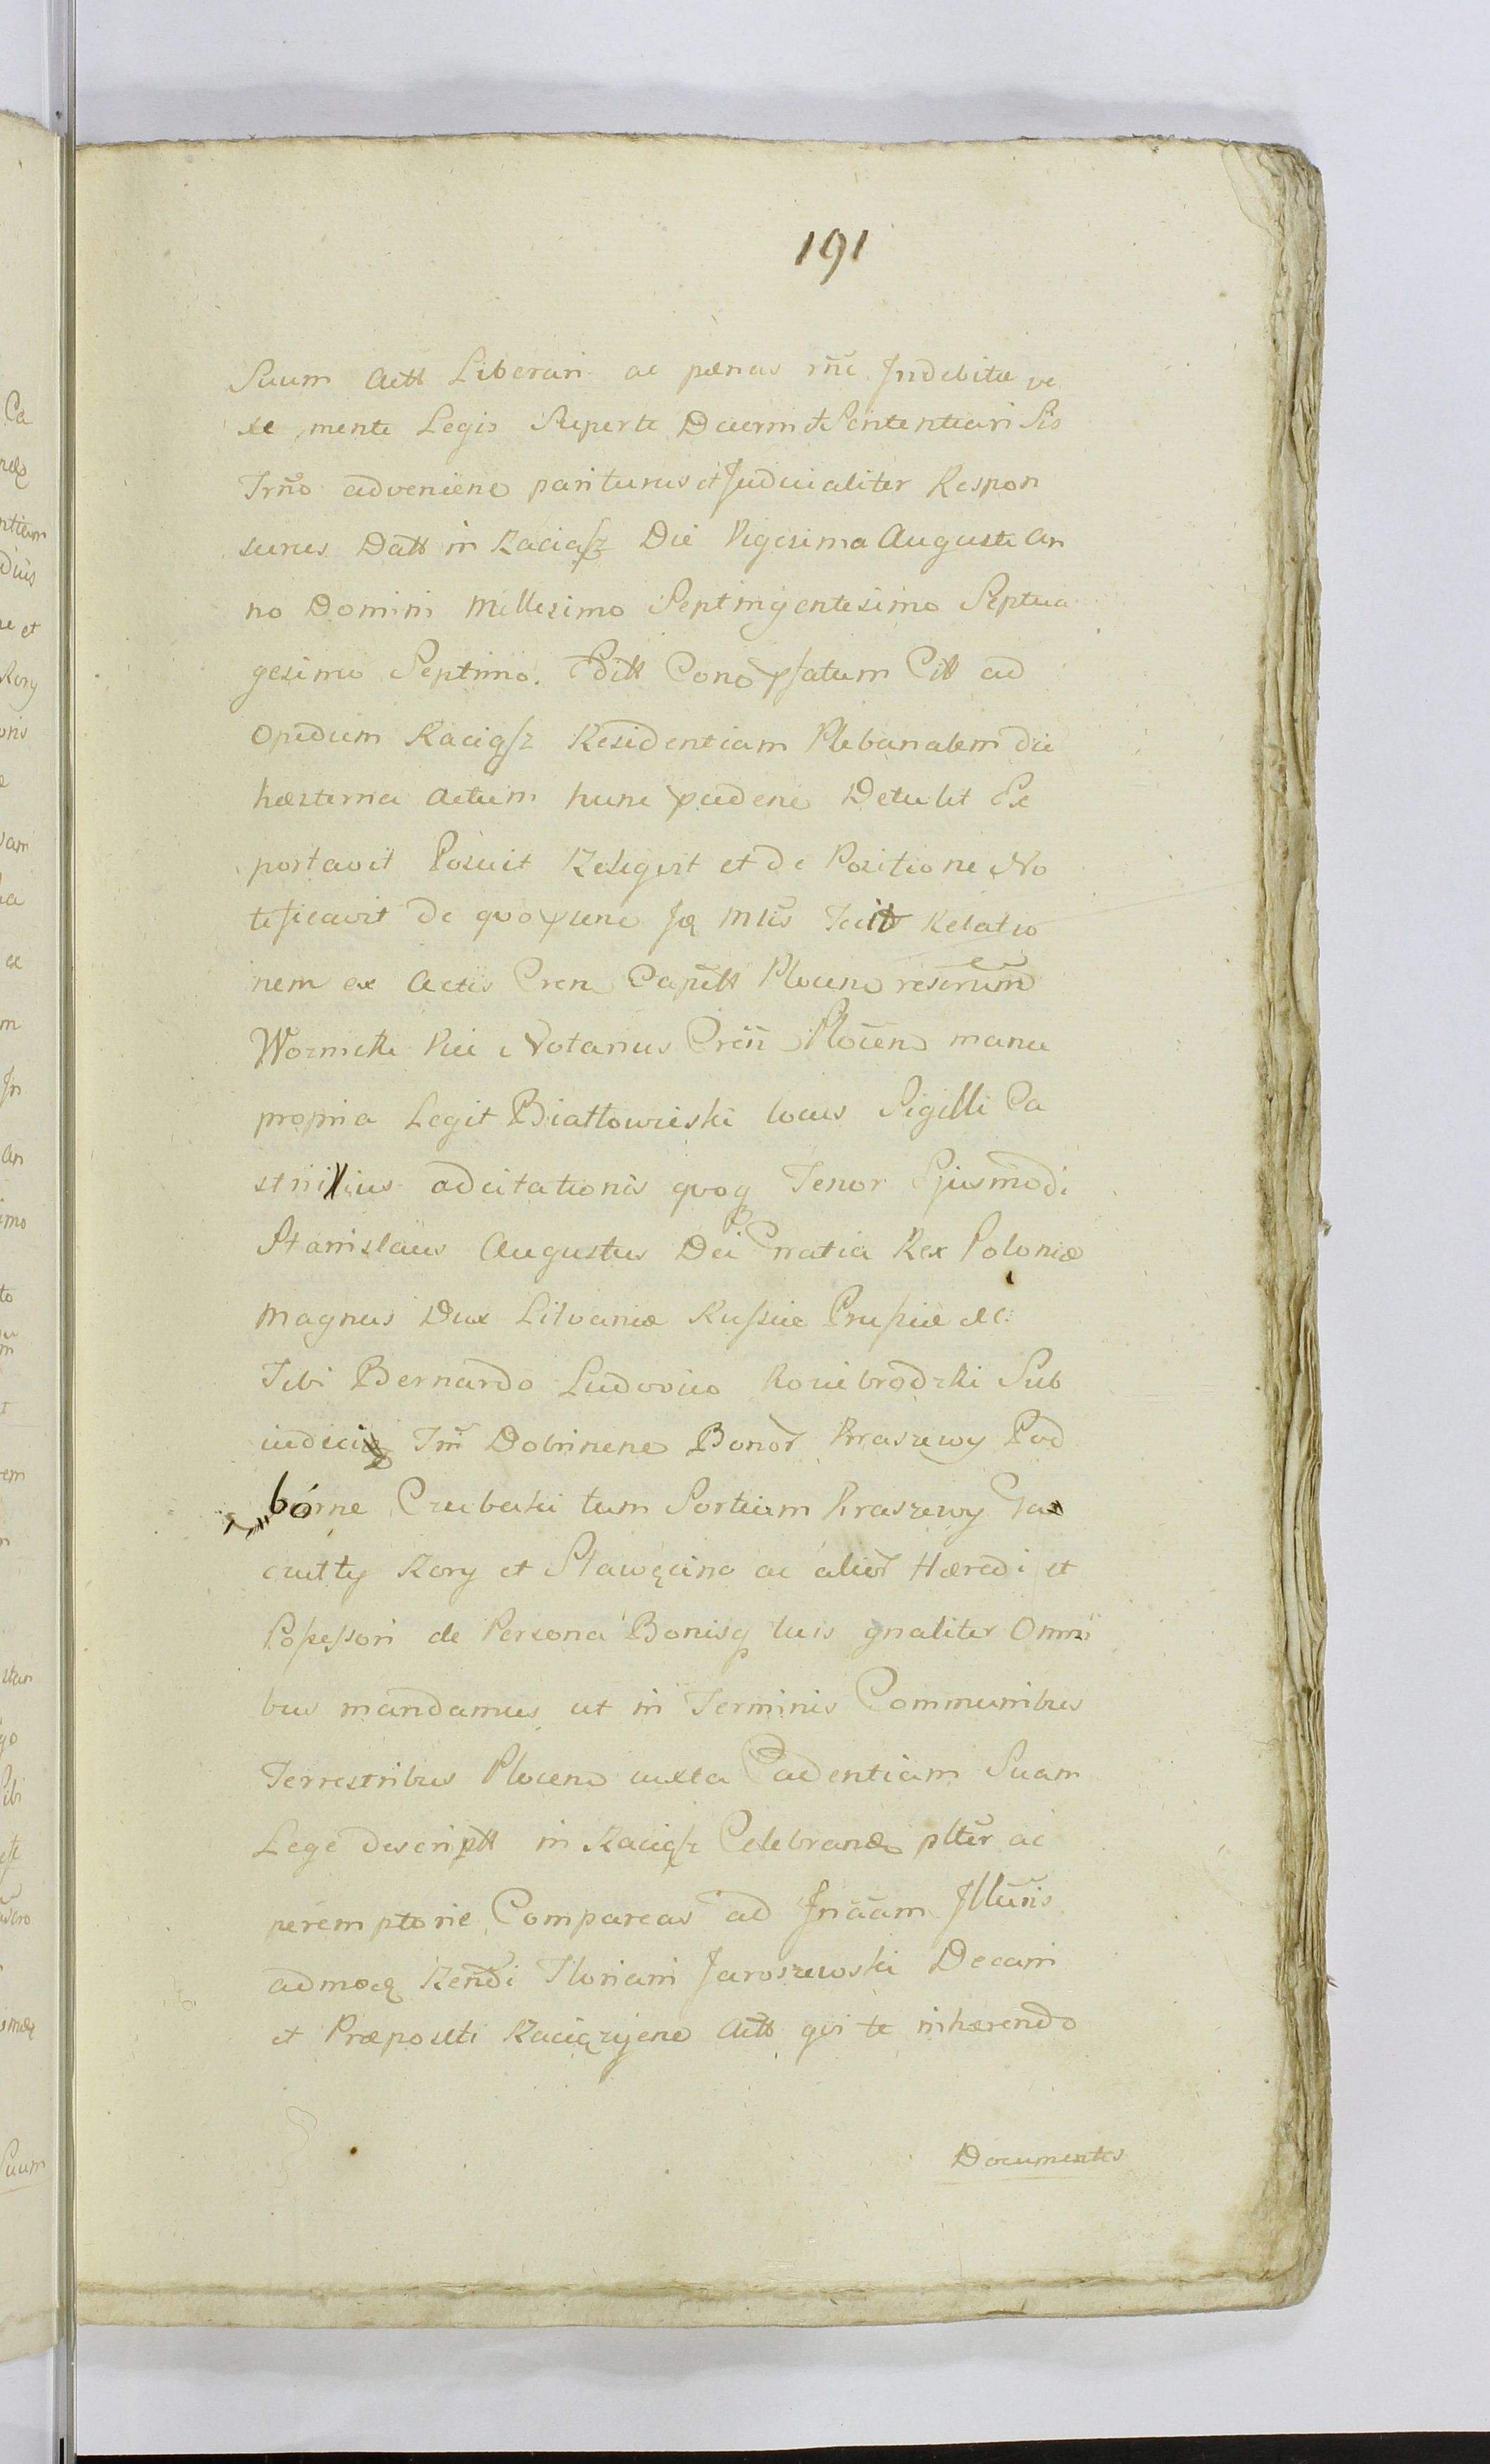 191
Suum Actt Liberari ac pænas rñe Indebitæ ve
xæ mente Legis Reperte Decerni et Sententiari Sis
Trño adveniene pariturus et Judicialiter Respon
surus Datt in Raciąſz Die Vigesima Augusti An
no Domini Millesimo Septingentesimo Septua
gesimo Septimo. Editt Cono pſatum Citt ad
Opidum Raciąſz Residentiam Plebanalem die
hæsterna Actum hunc pcedene Detulit Ex
portavit Posuit Religvit et de Positione No
tificavit de qvo pune Jq Mlis Fecit Relatio
nem ex Actis Cren Capitt Plocene reserum
Woznicki Vice Notarius Cren Plocen manu
propria Legit Białłowieski locus Sigilli Ca
strilius adcitationis qvoq Tenor Ejusmodi
Stanislaus Augustus Dei Gratia Rex Poloniæ
Magnus Dux Litvaniæ Rußiæ Prußiæ &c:
Tibi Bernardo Ludovico Rościbrodzki Sub
iudici Trñ Dobrinene Bonor Kraszewy Pod
bórne Czubaki tum Sortium Kraszewy Ga
czułty Rory et Sławęcino ac alior Hæredi et
Poſseſsori de Persona Bonisq tuis gnaliter Omni
bus mandamus ut in Terminis Communibus
Terrestribus Plocene iuxta Cadentiam Suam
Lege descriptt in Raciąſz Celebrand pltēr ac
peremptorie Compareas ad Jnāam Jllūris
admoq Rendi Floriani Jaroszewski Decani
et Præpositi Raciązijene Actt qvi te inhærendo
Documentis